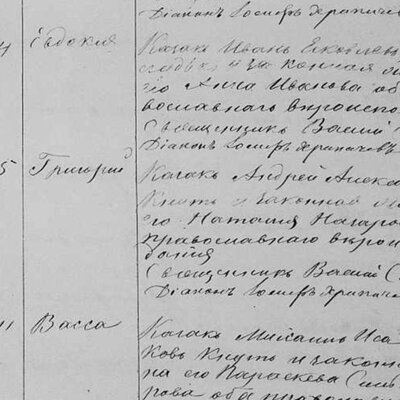 Діаконъ Іосифъ Храпачев
4 Евдокія Казакъ Иванъ Яковлев
и законная
его Анна Иванова об
вославнаго вероиспо
Священникъ Васил
Діаконъ Іосифъ Храпачевъ
5 Григорій Казакъ Андрей Алекс
Кнутъ и законная
его Наталія Назаро
православнаго верои
данія
Священникъ Василій С
Діаконъ Іосифъ Храпачев
11 Васса Казакъ Михаилъ Иса
ковъ Кнутъ и закон
на его Параскева
рова оба православ